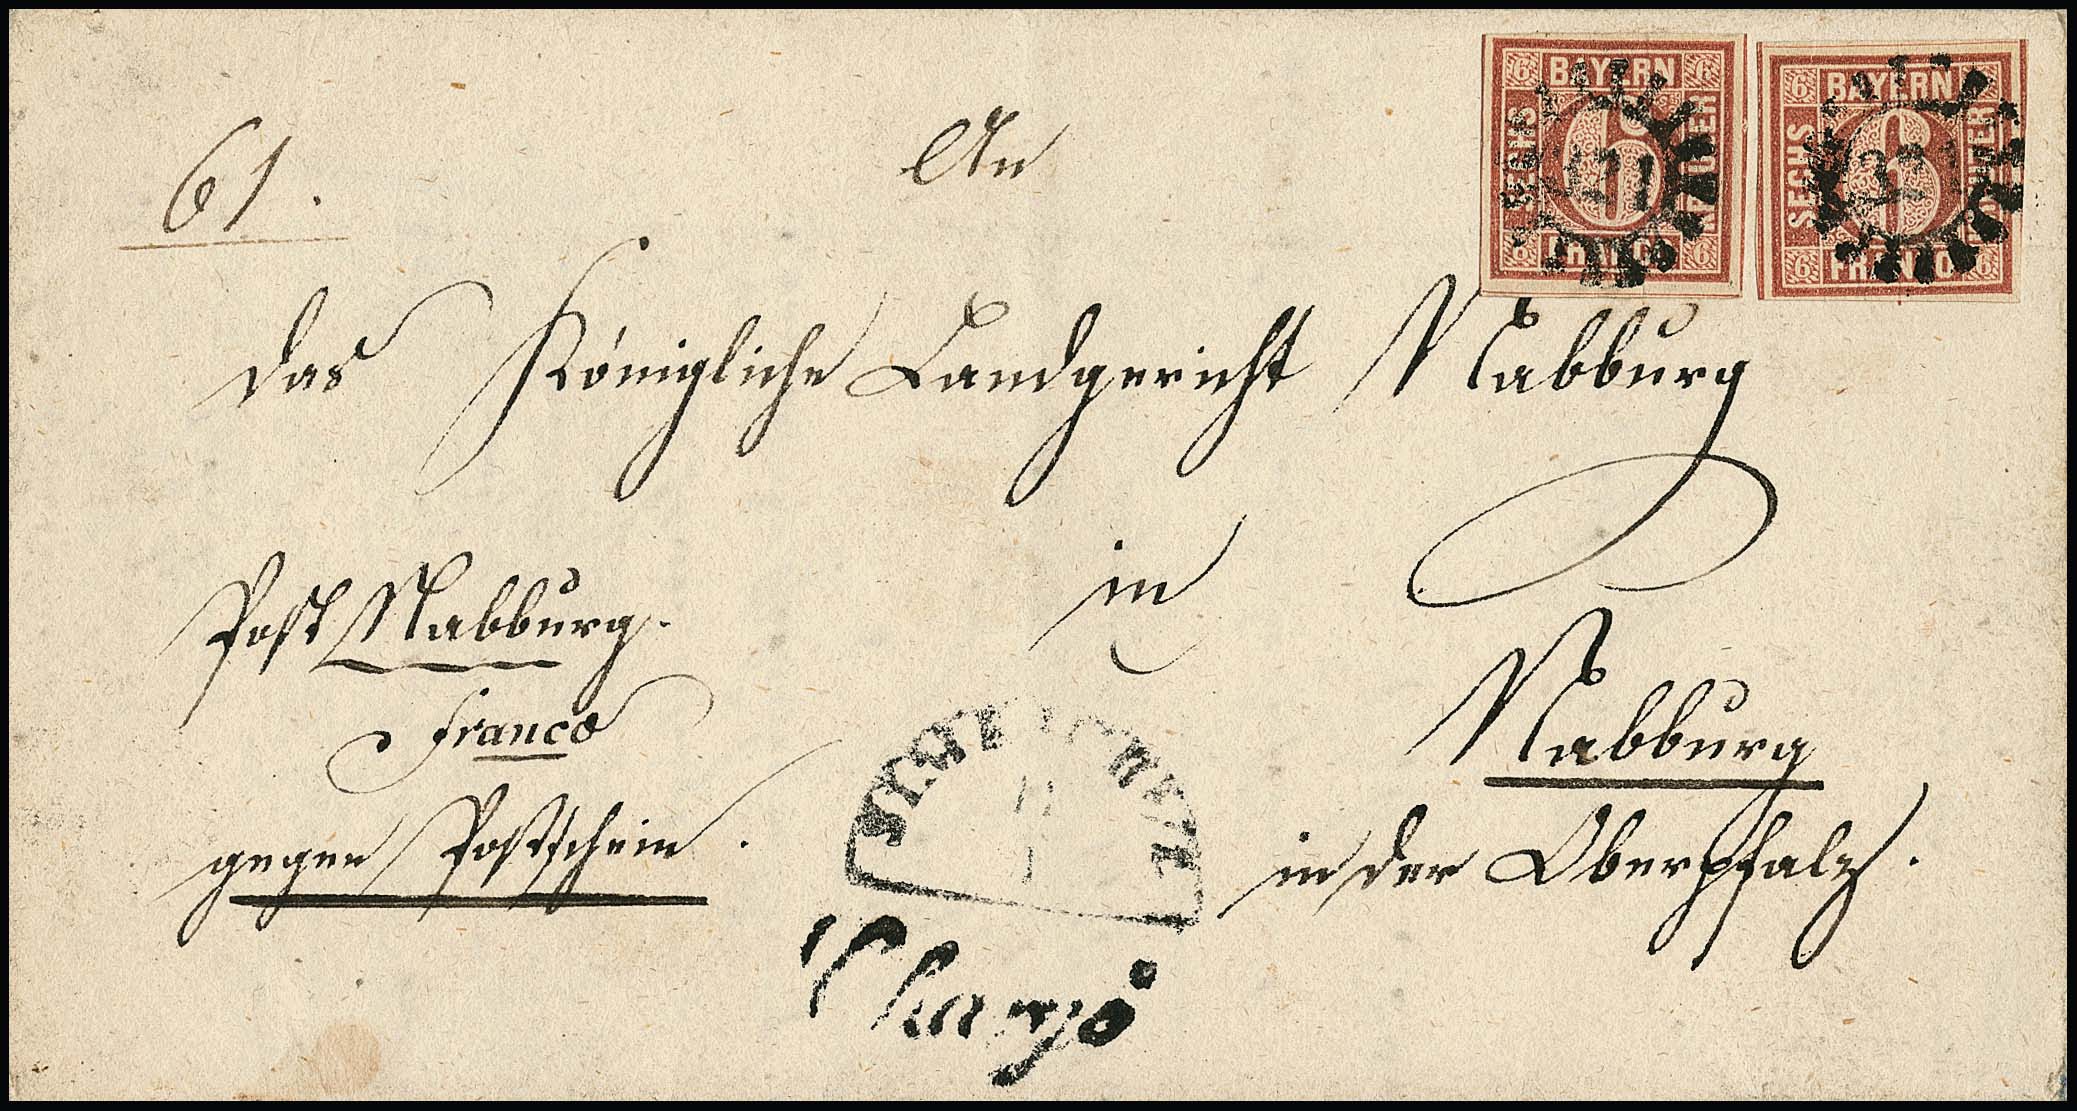 61.
An
das Königliche Landgericht Nabburg
in
Nabburg
in der Oberpfalz.
Post Nabburg.
Franco
gegen Postschein.
Chargé
6 BAYERN 6
SECHS 6 KREUZER
6 FRANCO 6
6 BAYERN 6
SECHS 6 KREUZER
6 FRANCO 6